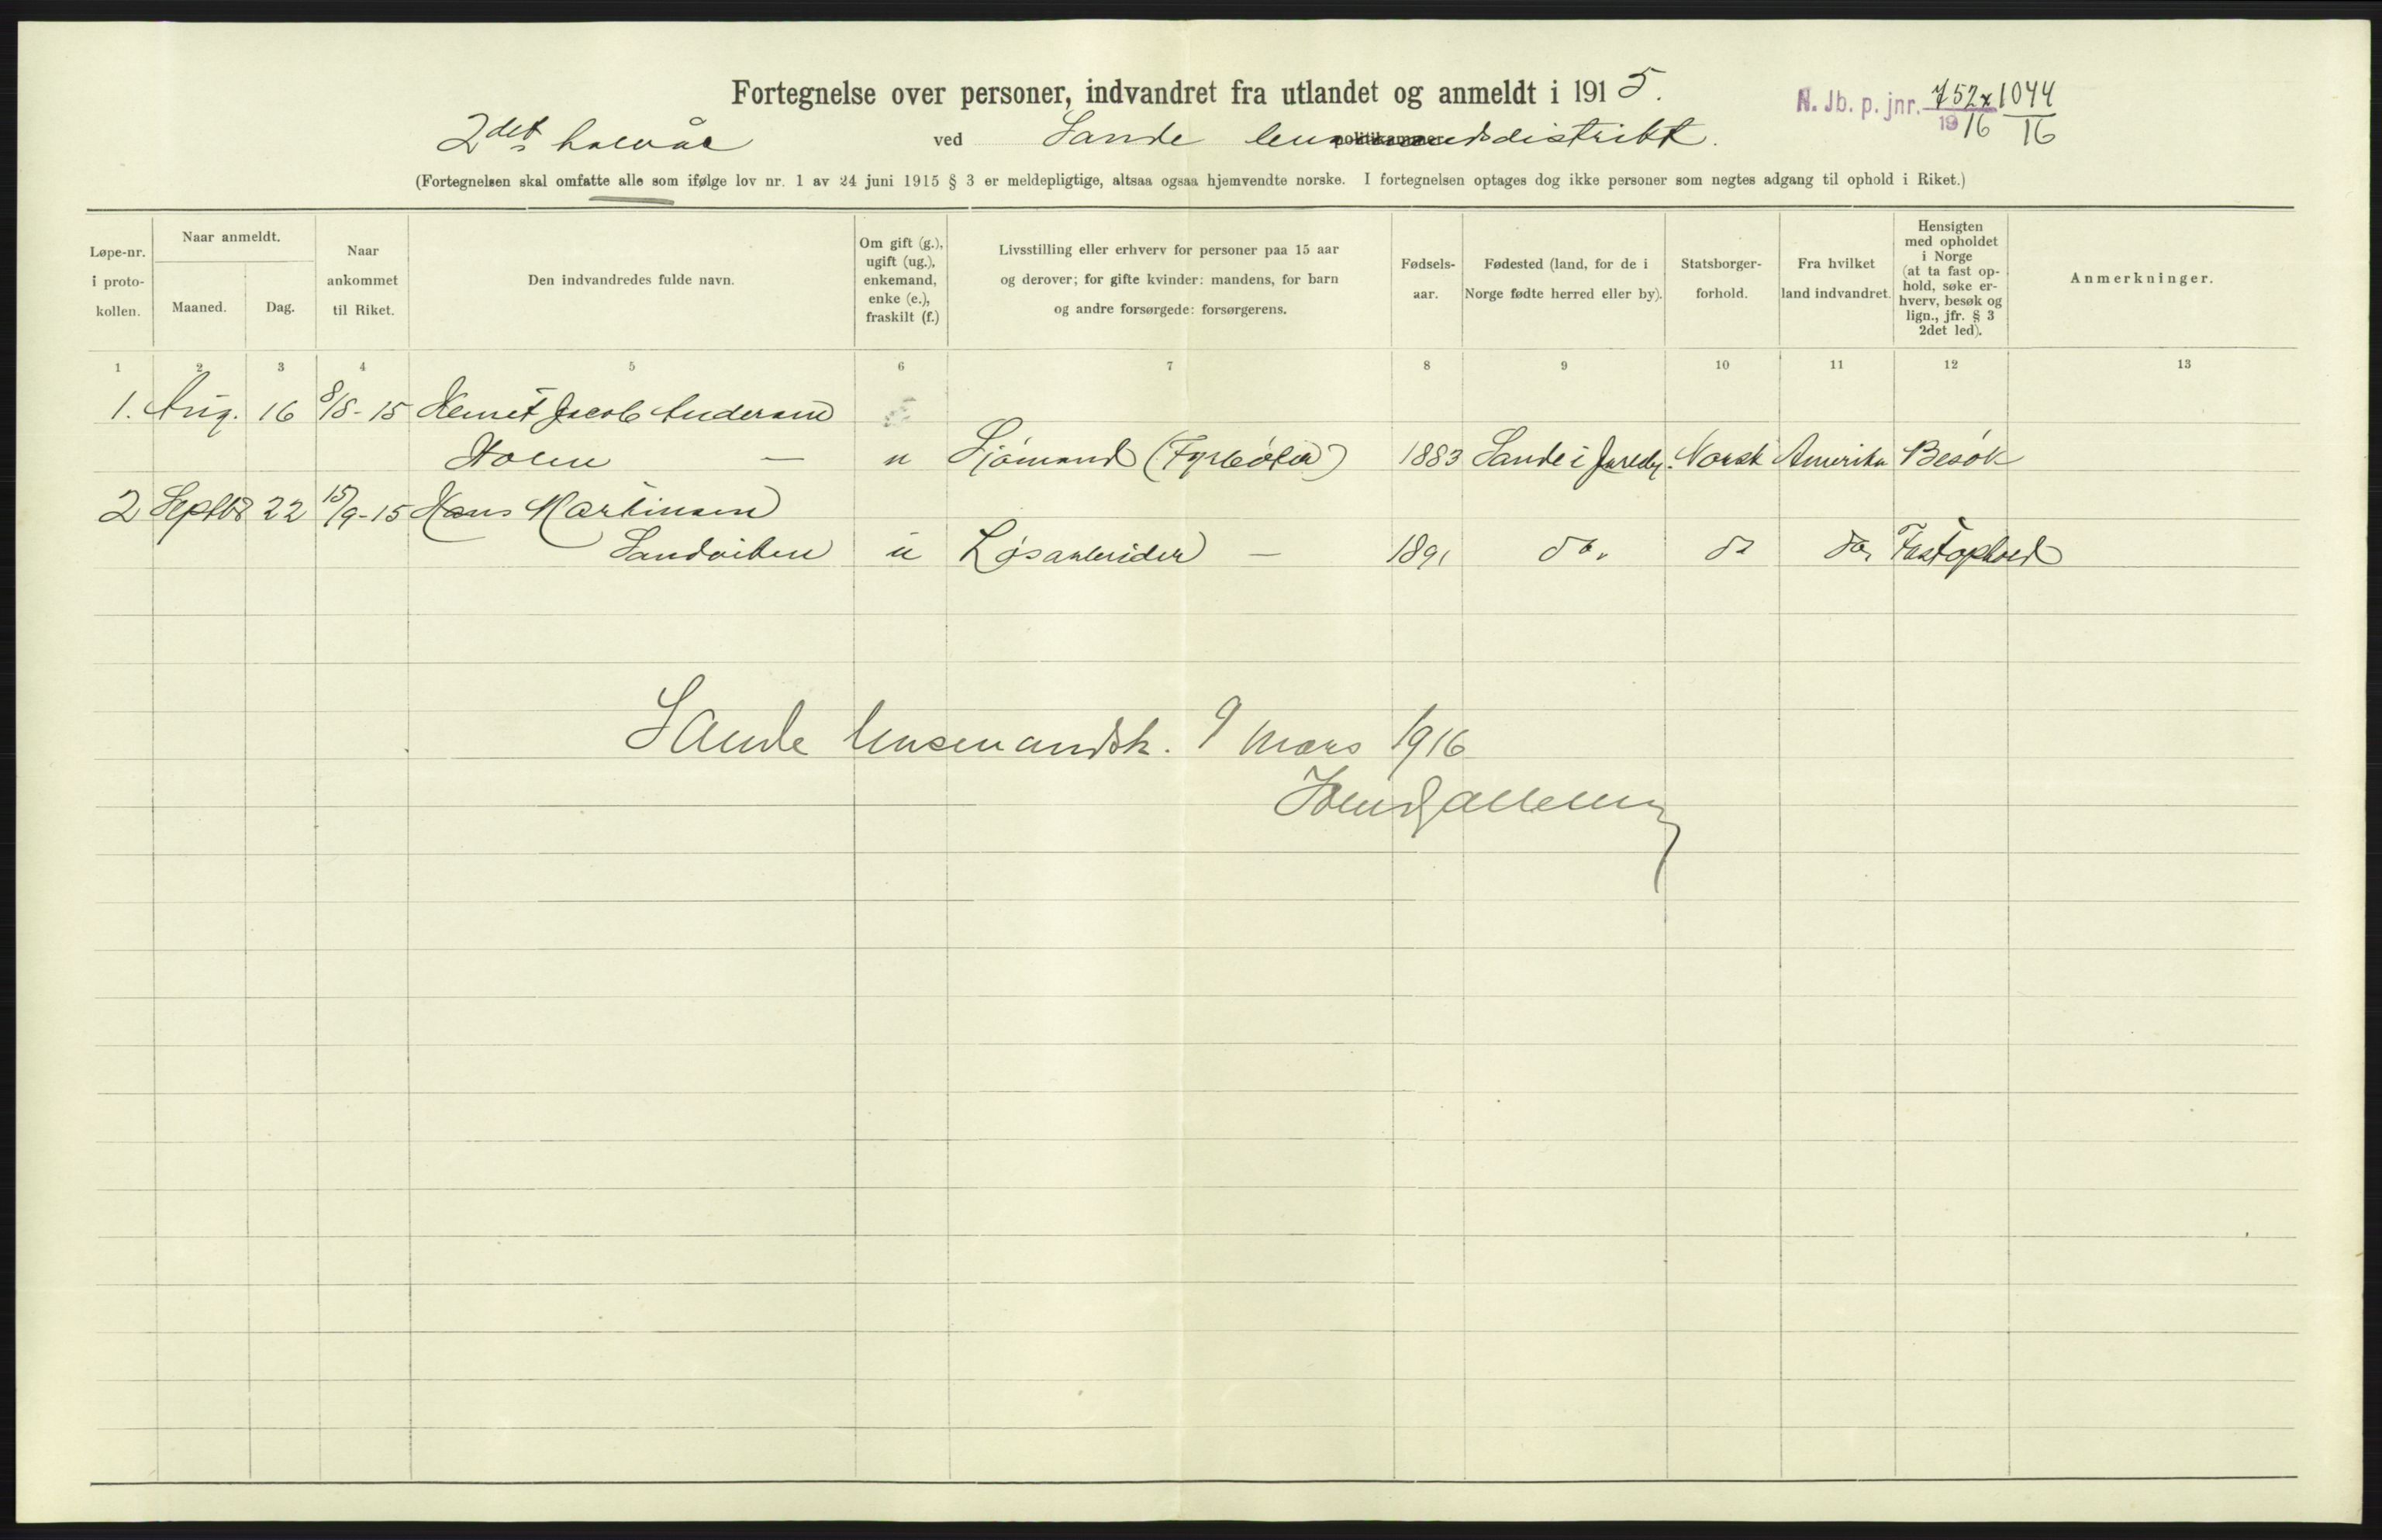 Fortegnelse over personer, indvandret fra utlandet og anmeldt i 1915.
N. Jb. p. jnr. 752 x 1044
1916 16
2det halvår ved Sande lensmandsdistrikt.
(Fortegnelsen skal omfatte alle som ifølge lov nr. 1 av 24 juni 1915 § 3 er meldepligtige, altsaa ogsaa hjemvendte norske. I fortegnelsen optages dog ikke personer som negtes adgang til ophold i Riket.)
Løpe-nr.
i proto-
kollen.
Naar anmeldt.
Maaned.
Dag.
Naar
ankommet
til Riket.
Den indvandredes fulde navn.
Om gift (g.),
ugift (ug.),
enkemand,
enke (e.),
fraskilt (f.)
Livsstilling eller erhverv for personer paa 15 aar
og derover; for gifte kvinder: mandens, for barn
og andre forsørgede: forsørgerens.
Fødsels-
aar.
Fødested (land, for de i
Norge fødte herred eller by).
Statsborger-
forhold.
Fra hvilket
land indvandret.
Hensigten
med opholdet
i Norge
(at ta fast op-
hold, søke er-
hverv, besøk og
lign., jfr. § 3
2det led).
Anmerkninger.
1 2 3 4 5 6 7 8 9 10 11 12 13
1. Aug. 16 8/8-15 Jacob Anderssen
Holm — u Sjømand (Fyrbøter) 1883 Sande i Norsk Amerika Besøk
2 Septbr 22 15/9-15 Hans Martinsen
Sandviken u Løsarbeider — 1891 do. do do. Fast ophold
Sande lensmandsk. 9 mars 1916